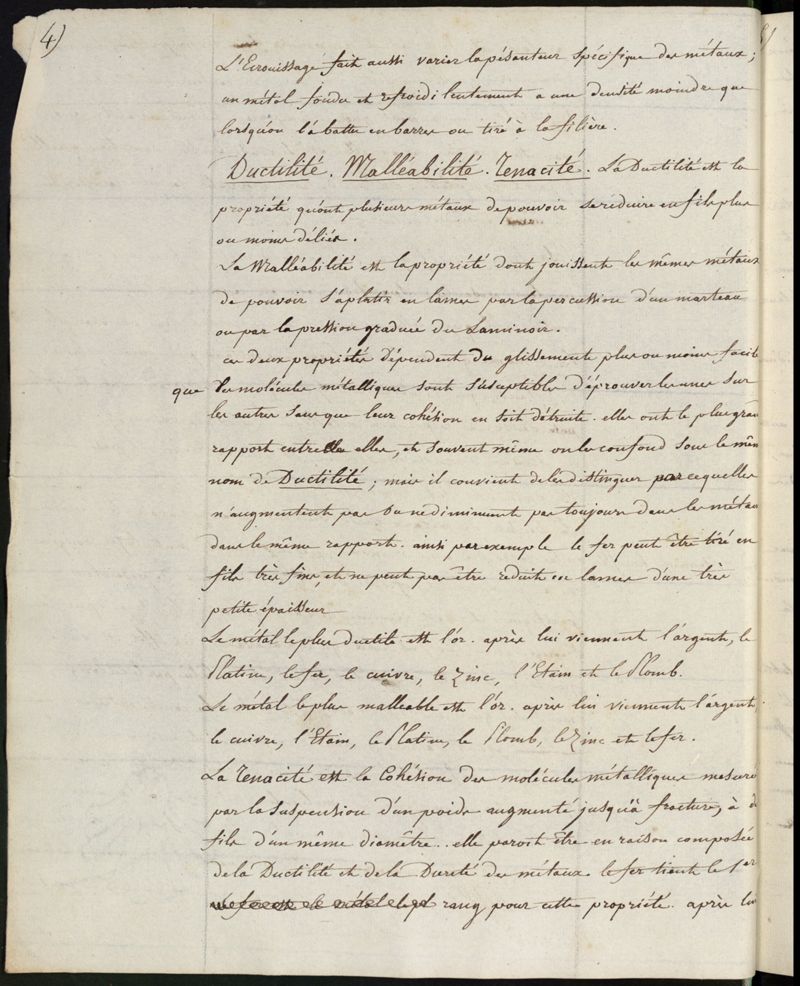 4)
L'Ecrouissage fait aussi varier la pésanteur spécifique des métaux;
un métal fondu et refroidi lentement a une densité moindre que
lorsqu'on l'a battu en barres ou tiré à la filière.
Ductilité. Malléabilité. Tenacité. La Ductilité est la
propriété qu'ont plusieurs métaux de pouvoir se réduire en fils plus
ou moins déliés.
La Malléabilité est la propriété dont jouissent les mêmes métaux
de pouvoir s'aplatir en lames par la percussion d'un marteau
ou par la pression graduée du Laminoir.
ces deux propriétés dépendent du glissement plus ou moins facile
que les molécules métalliques sont susceptibles d'éprouver les unes sur
les autres sans que leur cohésion en soit détruite. elles ont le plus gran
rapport entre elles, et souvent même on les confond sous le mêm
nom de Ductilité; mais il convient de les distinguer parcequelles
n'augmentent pas ou ne diminuent pas toujours dans les métau
dans le même rapport. ainsi par exemple le fer peut être tiré en
fils très fins, et ne peut pas être réduit en lames d'une très
petite épaisseur
Le métal le plus ductile est l'or. après lui viennent l'argent, le
Platine, le fer, le cuivre, le zinc, l'Etain et le Plomb.
Le métal le plus malléable est l'or. après lui viennent l'argent,
le cuivre, l'Etain, le Platine, le Plomb, le Zinc et le fer.
La Tenacité est la Cohésion des molécules métalliques mesuré
par la suspension d'un poids augmenté jusqu'à fracture, à d
fils d'un même diamêtre.. elle paroit être en raison composée
de la Ductilité et de la Dureté des métaux. le fer tient le 1er
rang pour cette propriété. après lu